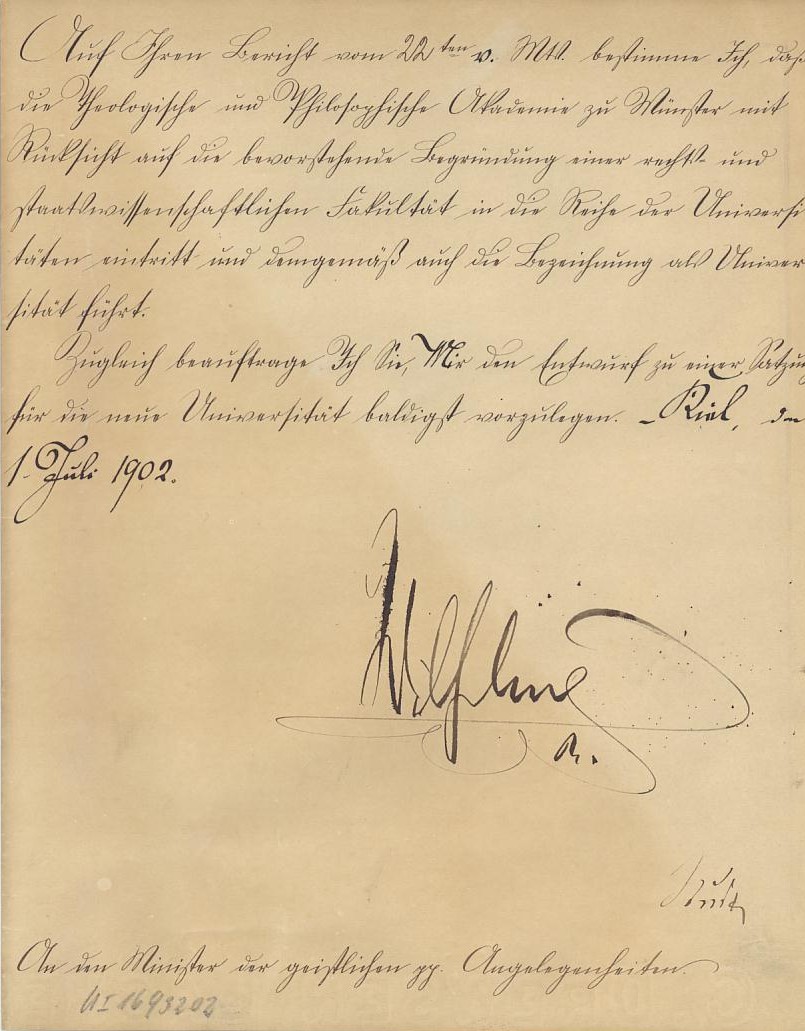 Auf Ihren Bericht vom 22ten v. Mts. bestimme Ich, daß
die Theologische und Philosophische Akademie zu Münster mit
Rücksicht auf die bevorstehende Begründung einer rechts- und
staatswissenschaftlichen Fakultät in die Reihe der Universi
täten eintritt und demgemäß auch die Bezeichnung als Univer
sität führt.
Zugleich beauftrage Ich Sie, Mir den Entwurf zu einer Satzung
für die neue Universität baldigst vorzulegen. - Kiel, den
1. Juli 1902.
Wilhelm
R.
Studt
An den Minister der geistlichen pp. Angelegenheiten.